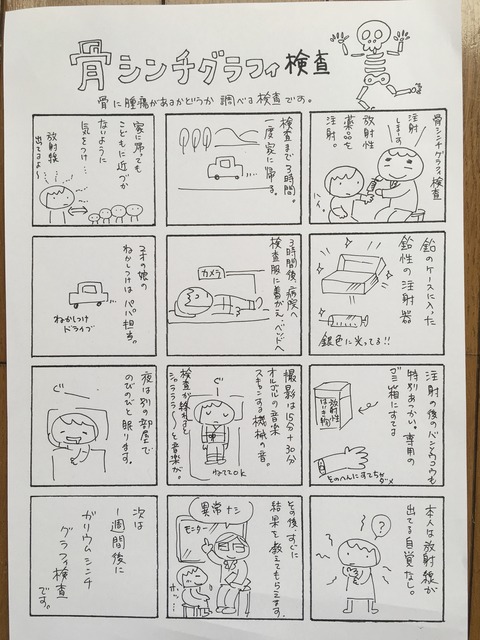 骨シンチグラフィ検査
骨に腫瘍があるかどうか調べる検査です。
骨シンチグラフィ検査
注射
しまーす
放射性
薬品を
注射。
鉛のケースに入った
鉛性の注射器
銀色に光ってる!!
注射の後のバンソウコウも
特別あつかい。専用の
ゴミ箱にすてる
放射性
はいき物
そのへんにすてちゃダメ
本人は放射線が
出てる自覚なし。
?
検査まで3時間。
一度家に帰る。
3時間後、病院へ
検査服に着がえ、ベッドへ
カメラ
撮影は15分+30分
オルゴールの音楽
スキャンする機械の音。
ねててOK
検査が終わると
シャララララ〜と音楽が。
その後すぐに
結果を教えてもらえます。
異常ナシ
モニター
ホッ…
家に帰っても
こどもに近づか
ないように
気をつけ…
放射線
出てるよ〜
2才の娘の
ねかしつけはパパ担当。
ねかしつけ
ドライブ
ぐー
夜は別の部屋で
のびのびと眠ります。
次は
1週間後に
ガリウムシンチ
グラフィ検査
です。